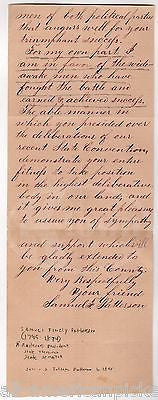 men of both political parties
that augurs well for your
triumphant success.
For my own part I
am in favor of the wider
awake men who have
fought the battle and
earned & achieved success.
The able manner in
which you presided over
the deliberations of our
recent State Convention,
demonstrate your entire
fitness to take position
in the highest deliberative
body in our land; and
it gives me great pleasure
to assure you of sympathy
and support which will
be gladly extended to
you from this County.
Very Respectfully
Your friend
Samuel F. Patterson
Samuel Finely Patterson
(1799-1874)
N.
State
State Senator